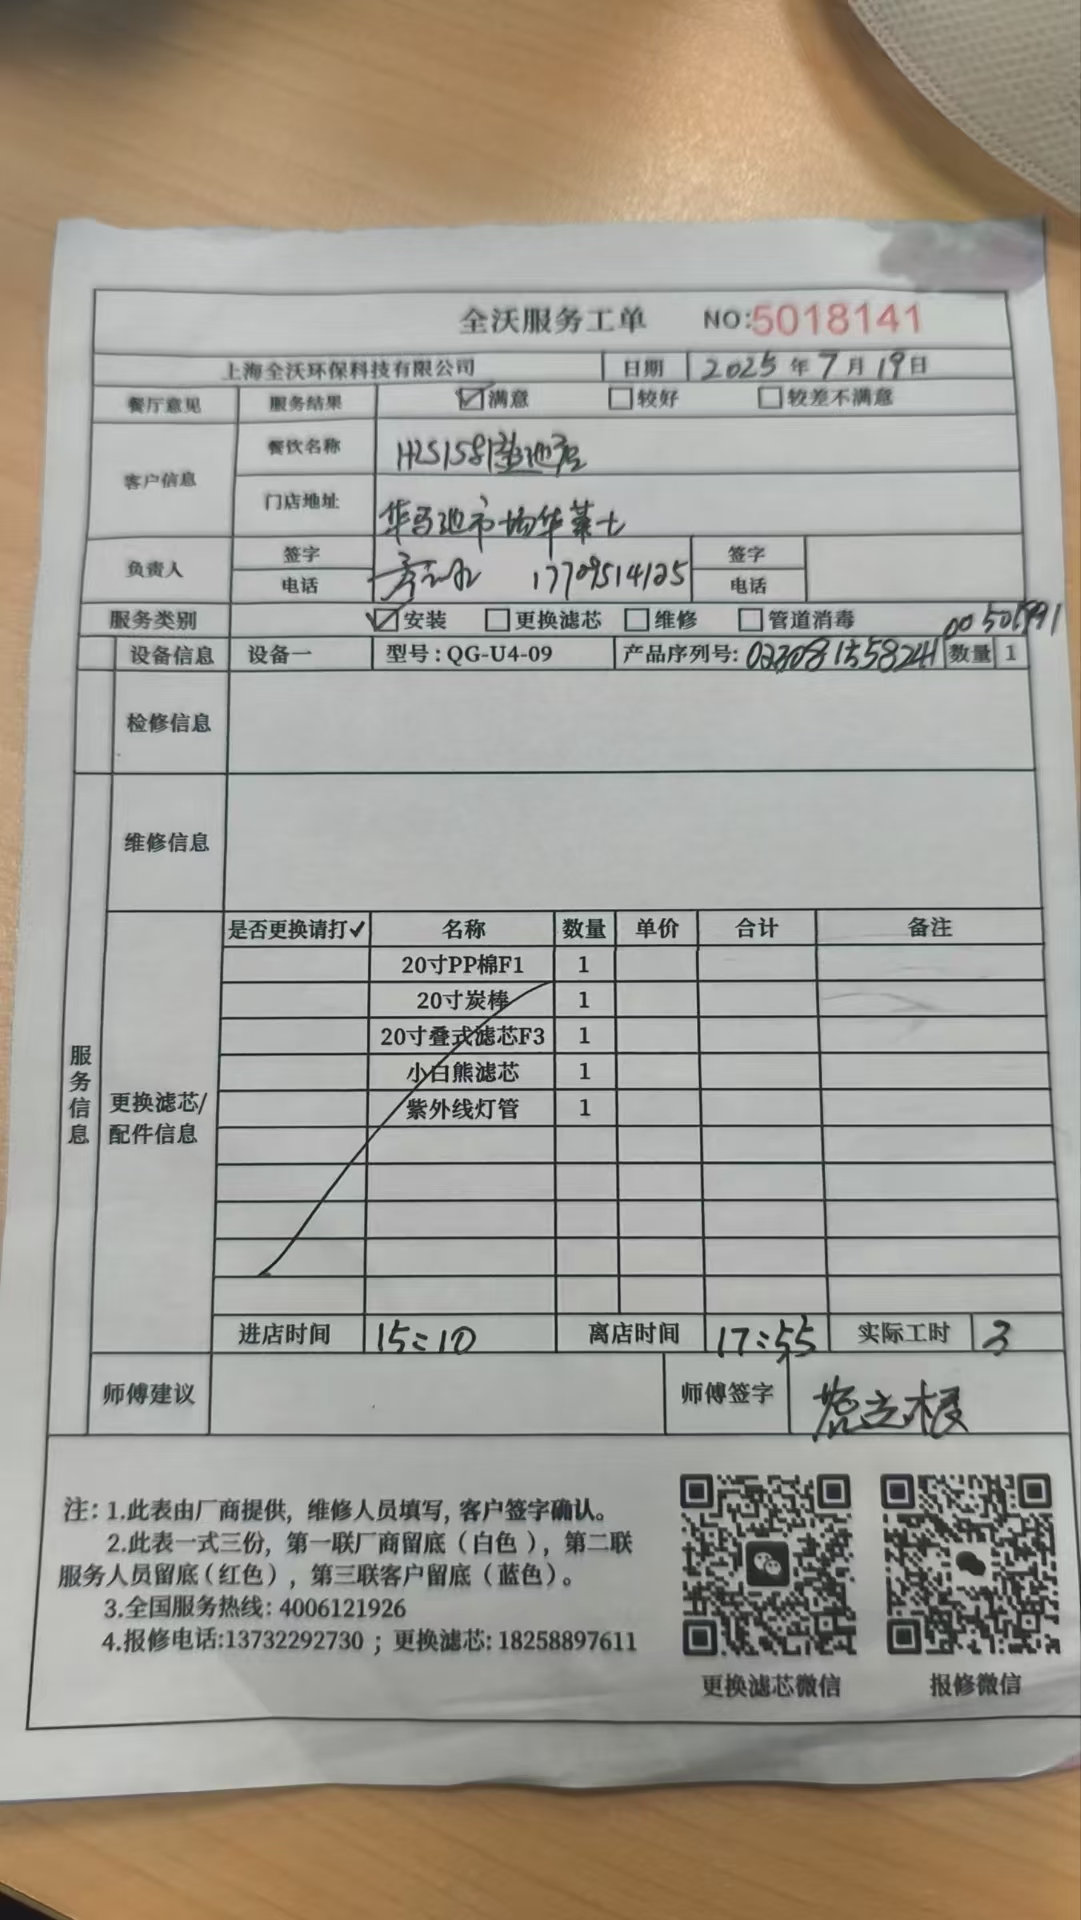 全沃服务工单 NO:5018141
上海全沃环保科技有限公司 日期 2025年7月19日
餐厅意见 服务结果 ☑满意 □较好 □较差不满意
客户信息 餐饮名称 HLS1581 地店
门店地址 华 池市场华莱士
负责人 签字 签字
电话 17709514125 电话
服务类别 ☑安装 □更换滤芯 □维修 □管道消毒
设备信息 设备一 型号:QG-U4-09 产品序列号: 数量 1
检修信息
维修信息
服务信息
更换滤芯/配件信息
是否更换请打✓ 名称 数量 单价 合计 备注
20寸PP棉F1 1
20寸炭棒 1
20寸叠式滤芯F3 1
小白熊滤芯 1
紫外线灯管 1
进店时间 15:10 离店时间 17:55 实际工时 3
师傅建议 师傅签字
注: 1.此表由厂商提供, 维修人员填写, 客户签字确认。
2.此表一式三份, 第一联厂商留底(白色), 第二联
服务人员留底(红色), 第三联客户留底(蓝色)。
3.全国服务热线: 4006121926
4.报修电话:13732292730 ; 更换滤芯: 18258897611
更换滤芯微信 报修微信